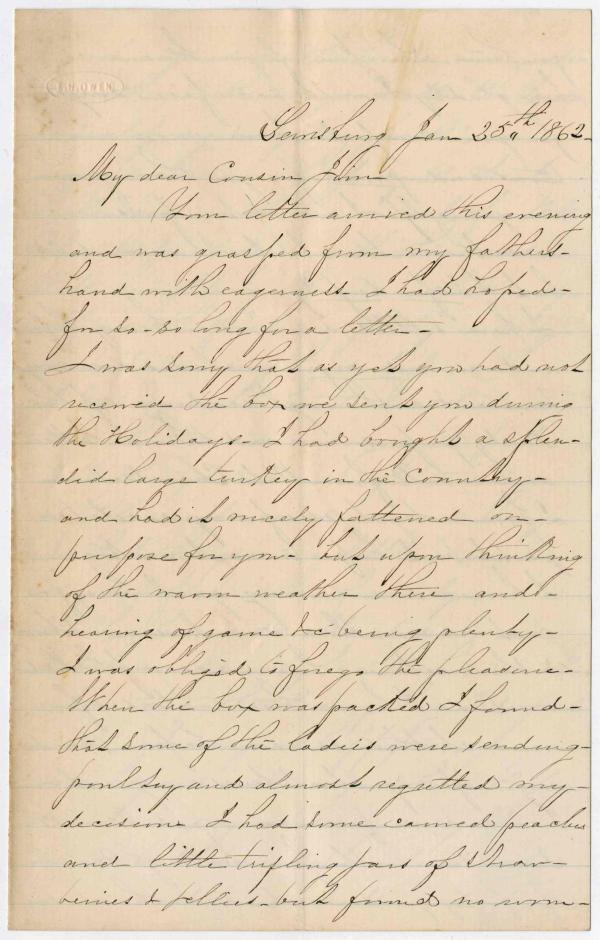 Lewisburg Jan 25th 1862-
My dear Cousin Jim
Your letter arrived this evening
and was grasped from my fathers-
hand with eagerness- I had hoped-
for so-so long for a letter-
I was sorry that as yet you had not
received the box we sent you during
the Holidays- I had bought a splen-
did large turkey in the country-
and had it nicely fattened on-
purpose for you- but upon thinking
of the warm weather there and-
hearing of game &c being plenty-
I was obliged to forego the pleasure-
When the box was packed I found-
that some of the ladies were sending-
poultry and almost regretted my-
decision I had some canned peaches
and little trifling jars of straw-
berries & jellies- but found no room-